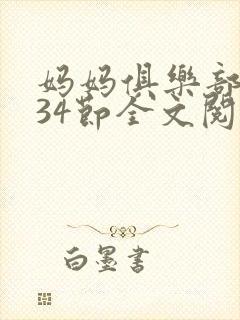 妈妈俱樂部
34節全文閱
白墨書